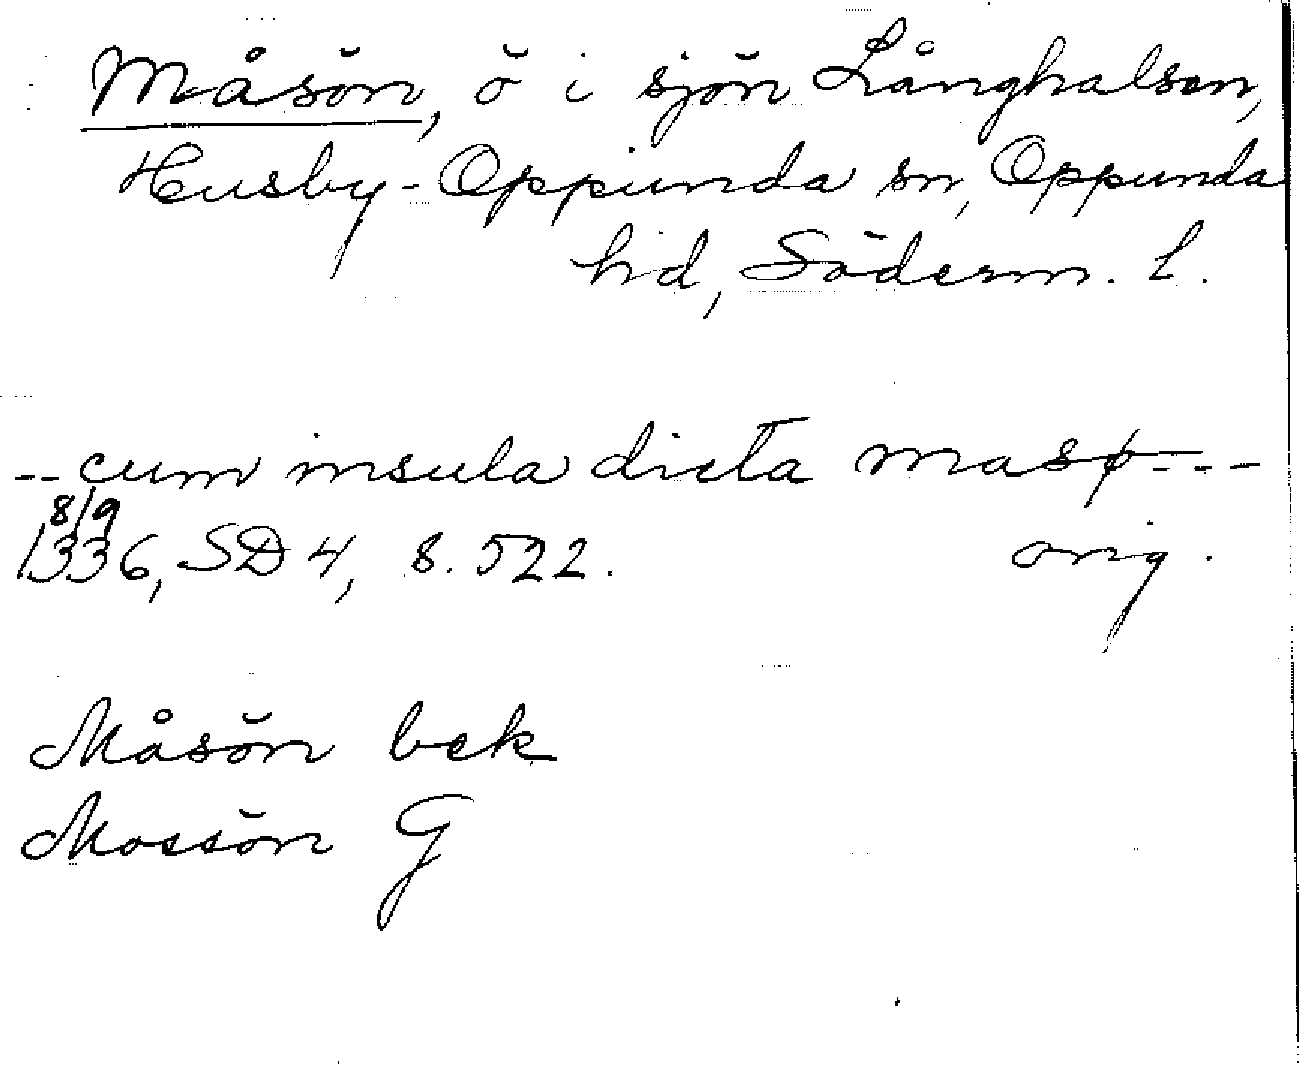 Måsön, ö i sjön Långhalsen,
Husby-Oppunda sn, Oppunda
hd, Söderm. l.
--cum insula dicta masø---
8/9
1336, SD 4, s. 522. orig.
Måsön bek
Mossön G